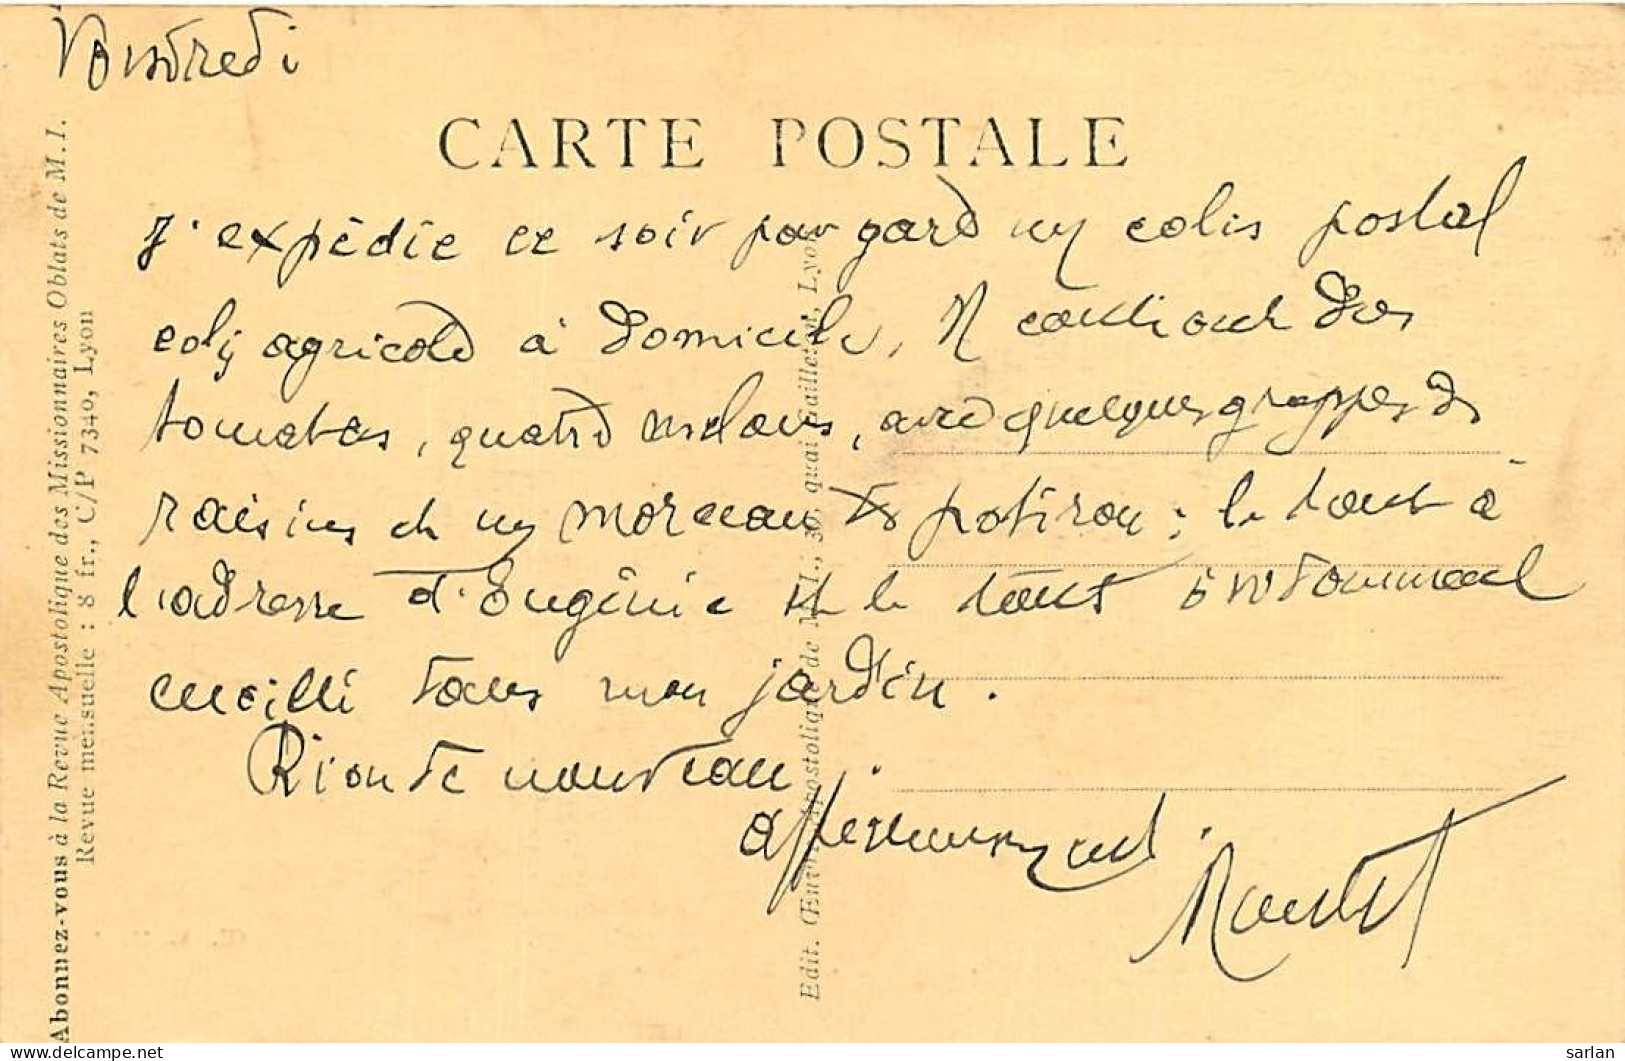 Vendredi
CARTE POSTALE
J'expédie ce soir par gare un colis postal
colis agricole à domicile, Il contient des
tomates, quatre melons, avec quelques grappes de
raisins et un morceau de potiron ; le tout à
l'adresse d'Eugénie et le tout évidemment
cueilli dans mon jardin.
Rien de nouveau.
affectueusement.
Abonnez-vous à la Revue Apostolique des Missionnaires Oblats de M. I.
Revue mensuelle : 8 fr., C/P 7340, Lyon
Edit. Œuvre Apostolique de M. I., 39, quai Gailleton, Lyon
www.delcampe.net
sarlan